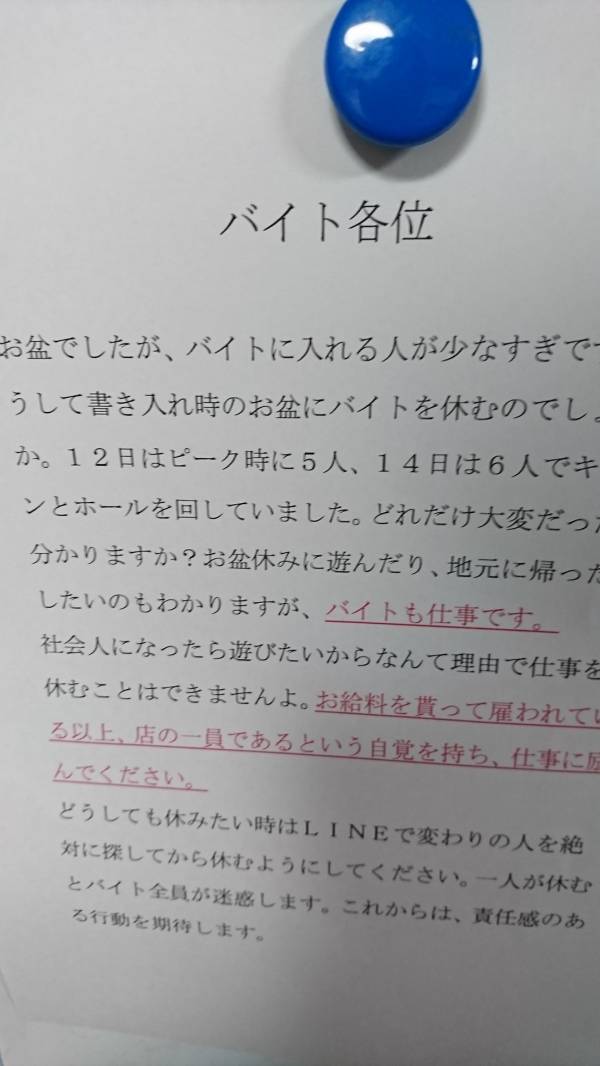 バイト各位
お盆でしたが、バイトに入れる人が少なすぎで
うして書き入れ時のお盆にバイトを休むのでし
か。12日はピーク時に5人、14日は6人でキ
ンとホールを回していました。どれだけ大変だっ
分かりますか？お盆休みに遊んだり、地元に帰った
したいのもわかりますが、バイトも仕事です。
社会人になったら遊びたいからなんて理由で仕事を
休むことはできませんよ。お給料を貰って雇われてい
る以上、店の一員であるという自覚を持ち、仕事に励
んでください。
どうしても休みたい時はLINEで変わりの人を絶
対に探してから休むようにしてください。一人が休む
とバイト全員が迷惑します。これからは、責任感のあ
る行動を期待します。